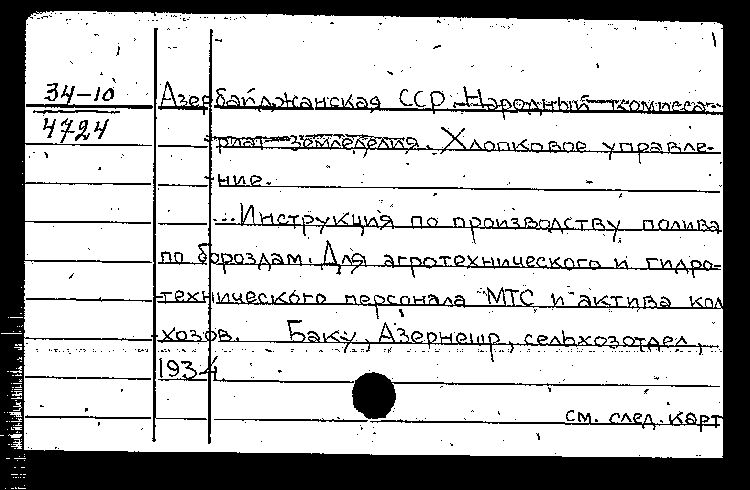 34-10
4724
Азербайджанская ССР. Народный комисса-
риат земледелия. Хлопковое управле-
ние.
...Инструкция по производству полива
по бороздам. Для агротехнического и гидро-
технического персонала МТС и актива кол
хозов. Баку, Азернешр, сельхозотдел,
1934.
см. след. карт